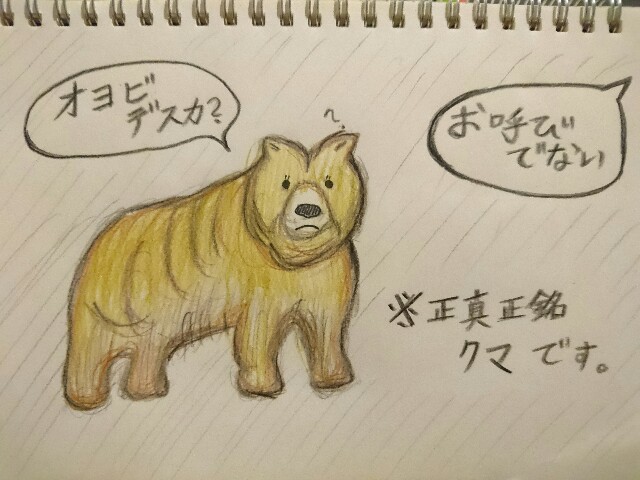 オヨビ
デスカ？
?
お呼び
でない
※正真正銘
クマです。